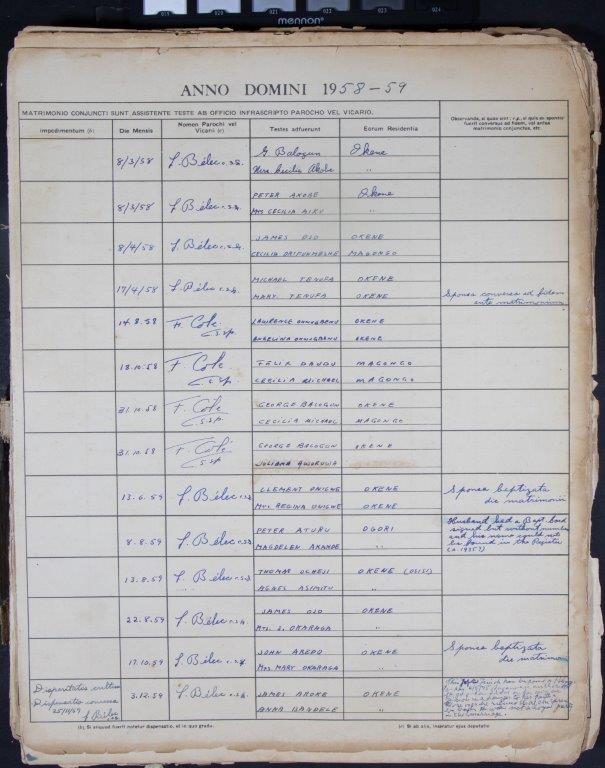 019 020 021 022 023 024
mennon
ANNO DOMINI 1958-59
MATRIMONIO CONJUNCTI SUNT ASSISTENTE TESTE AB OFFICIO INFRASCRIPTO PAROCHO VEL VICARIO.
Observanda, si quae sint, r.g., si quis ex sponsis fuerit conversus ad fidem, vel antea matrimonio conjunctus, etc.
Impedimentum (b) Die Mensis Nomen Parochi vel Vicarii (c) Testes adfuerunt Eorum Residentia
8/3/58 J. Bélec c.s.sp. G. Balogun Okene
Mrs Cecilia Akobe "
8/3/58 J. Bélec c.s.sp. PETER AKOBE Okene
Mrs CECILIA AIKU "
8/4/58 J. Bélec c.s.sp. JAMES OJO OKENE
CECILIA MAGONGO
17/4/58 J. Bélec c.s.sp. MICHAEL TENUFA OKENE
MARY TENUFA OKENE
Sponsa conversa ad fidem
ante matrimonium
14.8.58 F. Cole c.s.sp. LAWRENCE OKENE
ANGELINA OKENE
18.10.58 F. Cole c.s.sp. FELIX DAUDU MAGONGO
CECILIA MICHAEL MAGONGO
31.10.58 F. Cole c.s.sp. GEORGE BALOGUN OKENE
CECILIA MICHAEL MAGONGO
31.10.58 F. Cole c.s.sp. GEORGE BALOGUN OKENE
JULIANA
13.6.59 J. Bélec c.s.sp. CLEMENT ONIGWE OKENE
Mrs. REGINA ONIGWE OKENE
Sponsa baptizata
die matrimonii
8.8.59 J. Bélec c.s.sp. PETER ATURU OGORI
MAGDELEN AKANDE "
Husband had a Bapt. book
signed but without number
and his name could not
be found in the Register
(a. 1935?)
13.8.59 J. Bélec c.s.sp. THOMAS OCHEJI OKENE (OSISI)
AGNES ASIMITU "
22.8.59 J. Bélec c.s.sp. JAMES OJO OKENE
Mrs. S. OKARAGA "
17.10.59 J. Bélec c.s.sp. JOHN AREDO OKENE
Mrs MARY OKARAGA "
Sponsa baptizata
die matrimonii
Disparitatis cultus
Dispensatio concessa
25/11/59
J. Bélec c.s.sp.
3.12.59 J. Bélec c.s.sp. JAMES AROKE OKENE
ANNA BANDELE "
(b) Si aliquod fuerit notetur dispensatio, et in quo gradu. (c) Si ab alio, inspratur ejus deputatio